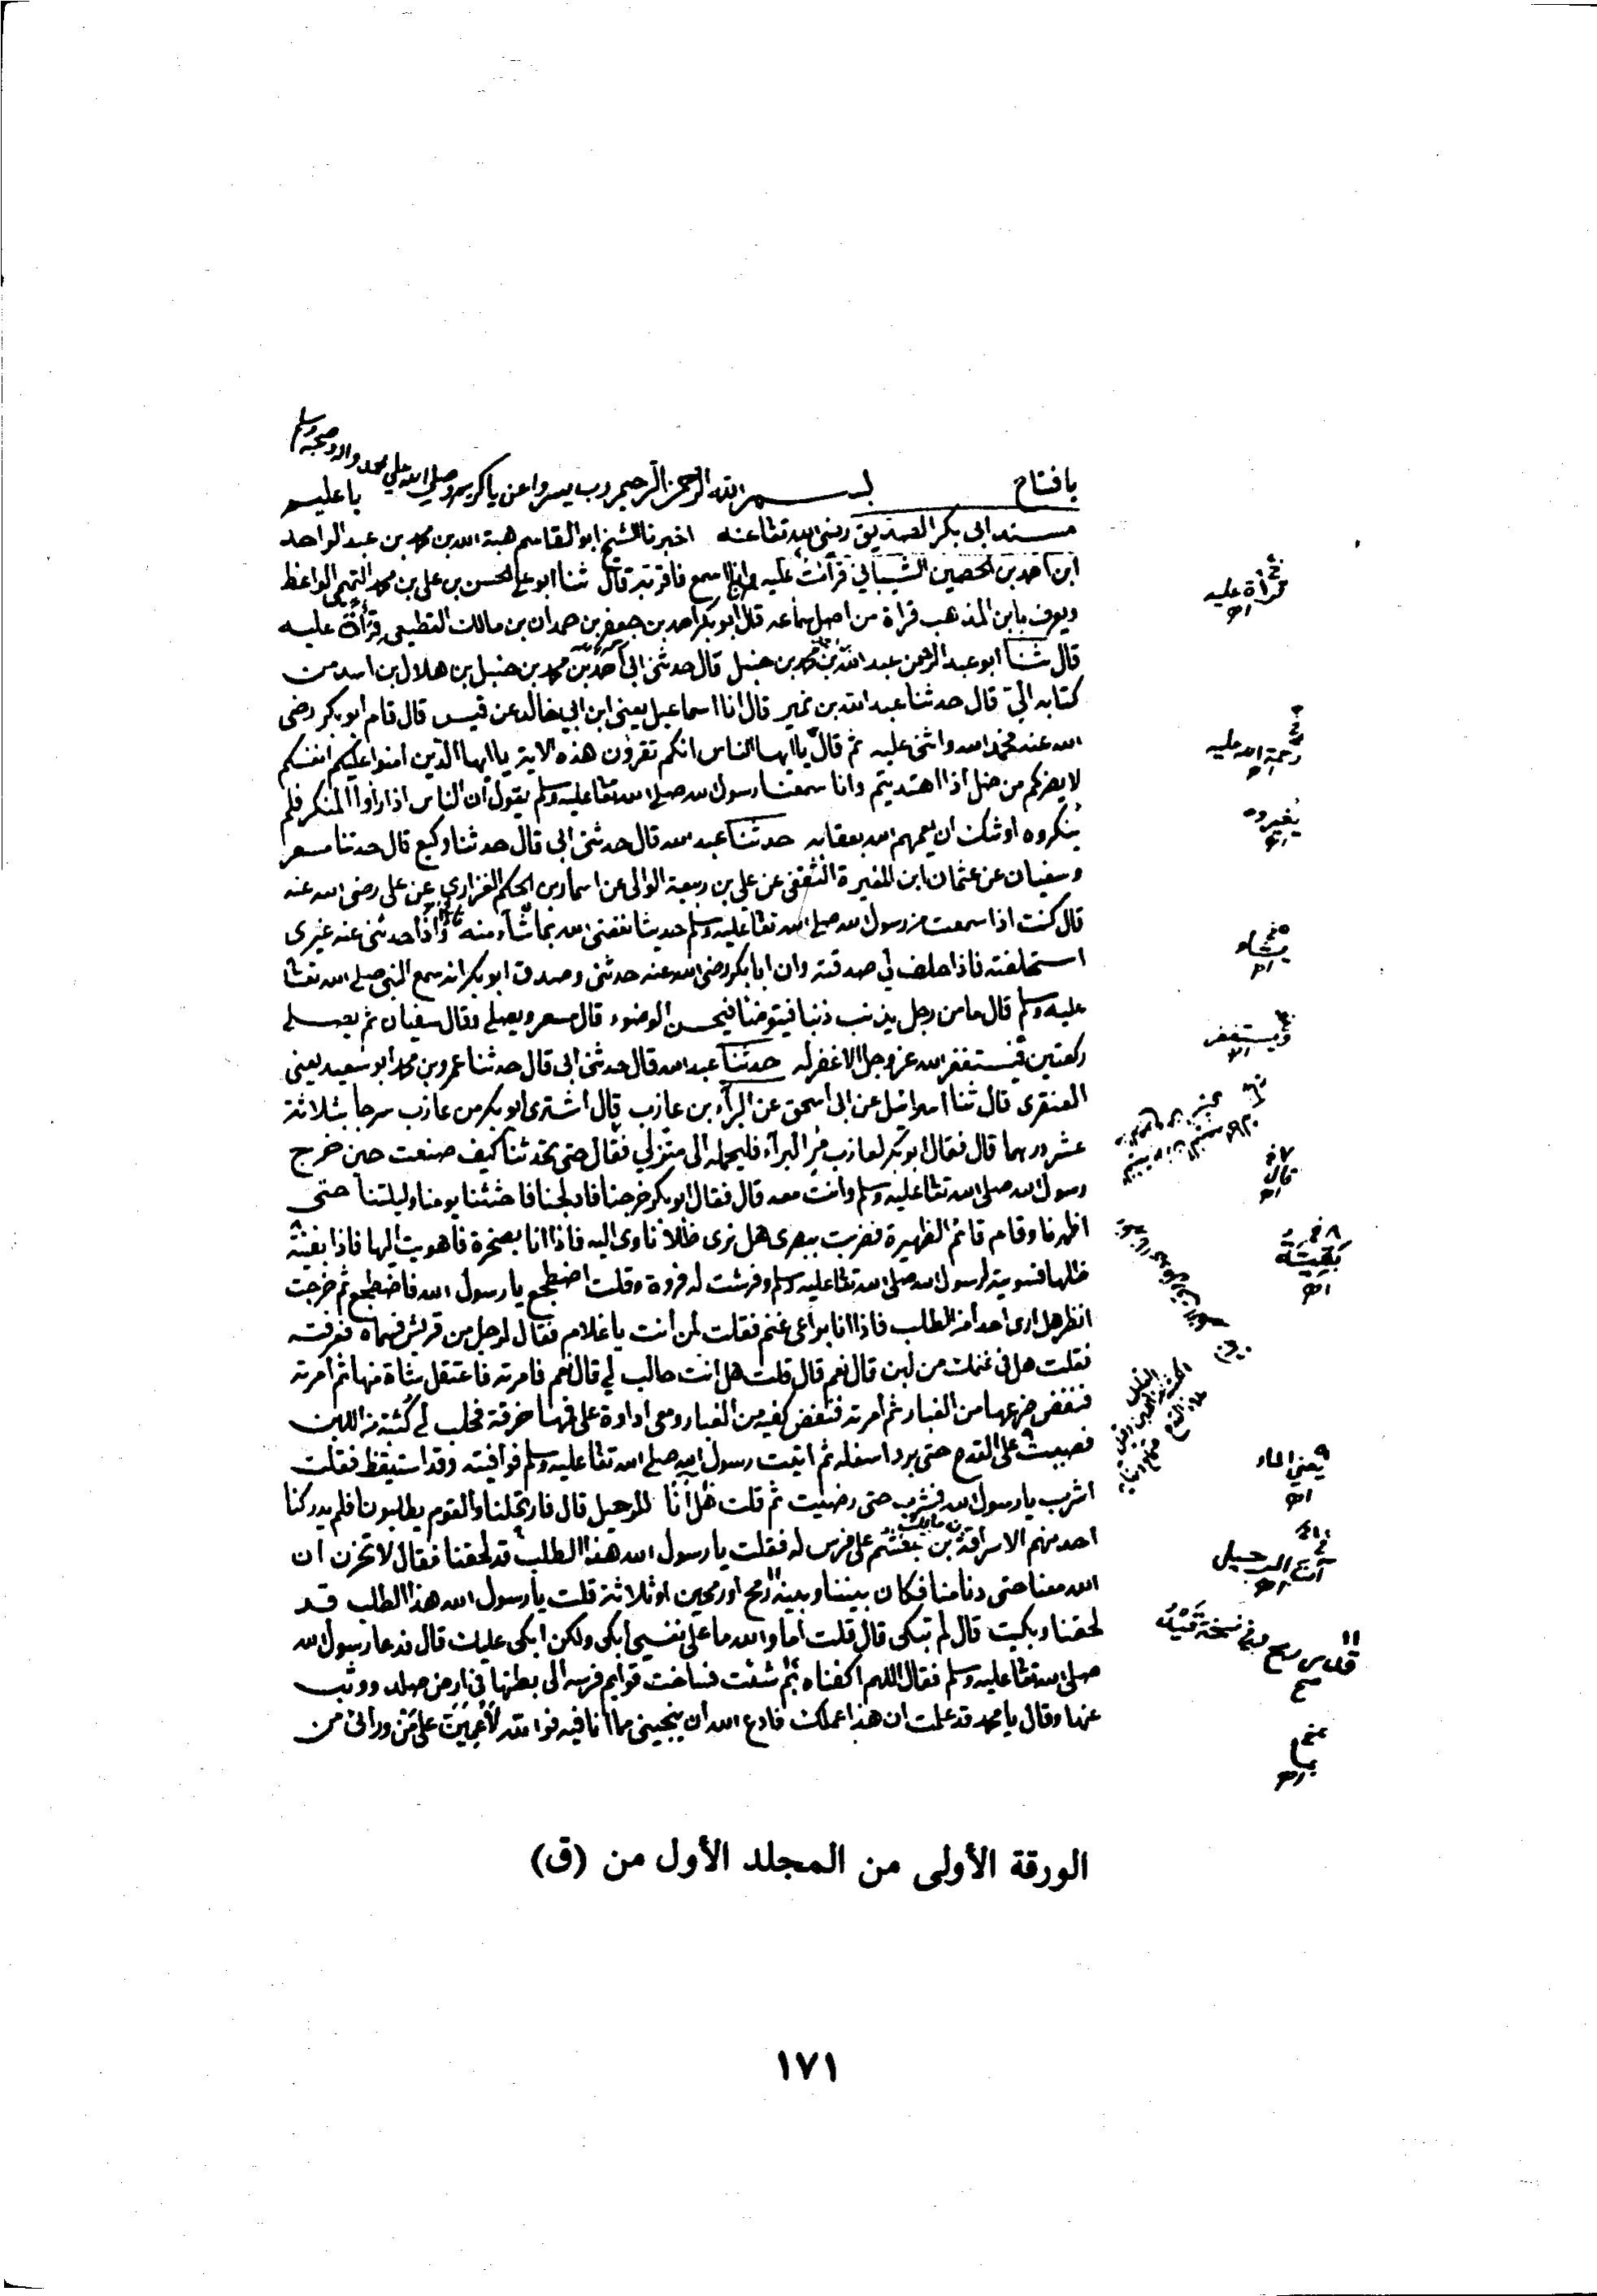 يا فتاح بسم الله الرحمن الرحيم رب يسر واعن يا كريم وصلى الله على محمد واله وصحبه وسلم يا عليم
مسند ابى بكر الصديق رضى الله تعا عنه اخبرنا الشيخ ابو القاسم هبة الله بن محمد بن عبد الواحد
ابن احمد بن الحصين الشيباني قراءت عليه وانا اسمع فاقر به قال ثنا ابو علي الحسن بن على بن محمد التميمي الواعظ
ويعرف بابن المذهب قراة من اصل سماعه قال ابو بكر احمد بن جعفر بن حمدان بن مالك القطيعي قرأة عليه
قال ثنا ابو عبد الرحمن عبد الله بن محمد بن حنبل قال حدثنى ابى احمد بن محمد بن حنبل بن هلال بن اسد من
كتابه الي قال حدثنا عبد الله بن نمير قال انا اسماعيل يعنى ابن ابى خالد عن قيس قال قام ابو بكر رضى
الله عنه فحمد الله واثنى عليه ثم قال يا ايها الناس انكم تقرؤن هذه الاية يا ايها الذين امنوا عليكم انفسكم
لا يضركم من ضل اذا اهتديتم وانا سمعنا رسول الله صلى الله تعا عليه وسلم يقول ان الناس اذا رأوا المنكر فلم
ينكروه اوشك ان يعمهم الله بعقابه حدثنا عبد الله قال حدثنى ابى قال حدثنا وكيع قال حدثنا مسعر
وسفيان عن عثمان ابن المغيرة الثقفى عن على بن ربيعة الوالى عن اسماء بن الحكم الفزاري عن على رضى الله عنه
قال كنت اذا سمعت من رسول الله صلى الله تعا عليه وسلم حديثا نفعنى الله بما شآء منه واذا حدثنى عنه غيرى
استحلفته فاذا حلف لي صدقته وان ابا بكر رضى الله عنه حدثنى وصدق ابو بكر انه سمع النبى صلى الله تعا
عليه وسلم قال ما من رجل يذنب ذنبا فيتوضأ فيحسن الوضوء قال مسعر ويصلى وقال سفيان ثم يصلى
ركعتين فيستغفر الله عز وجل الا غفر له حدثنا عبد الله قال حدثنى ابى قال حدثنا عمرو بن محمد ابو سعيد يعنى
العنقزى قال ثنا اسرائيل عن ابى اسحق عن البرآء بن عازب قال اشترى ابو بكر من عازب سرجا بثلاثة
عشر درهما قال فقال ابو بكر لعازب مر البرآء فليحمله الى منزلي فقال حتى تحدثنا كيف صنعت حين خرج
رسول الله صلى الله تعا عليه وسلم وانت معه قال فقال ابو بكر خرجنا فادلجنا فاحثثنا يومنا وليلتنا حتى
اظهرنا وقام قائم الظهيرة فضربت ببصرى هل نرى ظلا ناوى اليه فاذا انا بصخرة فاهويت اليها فاذا بقية
ظلها فسويته لرسول الله صلى الله تعا عليه وسلم وفرشت له فروة وقلت اضطجع يا رسول الله فاضطجع ثم خرجت
انظر هل ارى احدا من الطلب فاذا انا براعى غنم فقلت لمن انت يا غلام فقال لرجل من قريش فسماه فعرفته
فقلت هل فى غنمك من لبن قال نعم قال قلت هل انت حالب لي قال نعم فامرته فاعتقل شاة منها ثم امرته
فنفض ضرعها من الغبار ثم امرته فنفض كفيه من الغبار ومعى اداوة على فمها خرقة فحلب لي كثبة من اللبن
فصببت على القدح حتى برد اسفله ثم اتيت رسول الله صلى الله تعا عليه وسلم فوافيته وقد استيقظ فقلت
اشرب يا رسول الله فشرب حتى رضيت ثم قلت هل أنا للرحيل قال فارتحلنا والقوم يطلبونا فلم يدركنا
احد منهم الا سراقة بن مالك بن جعشم على فرس له فقلت يا رسول الله هذا الطلب قد لحقنا فقال لا تحزن ان
الله معنا حتى دنا منا فكان بيننا وبينه رمح او رمحين او ثلاثة قلت يا رسول الله هذا الطلب قد
لحقنا وبكيت قال لم تبكى قال قلت اما والله ما على نفسى ابكى ولكن ابكى عليك قال فدعا رسول الله
صلى الله تعا عليه وسلم فقال اللهم اكفناه بم شئت فساخت قوايم فرسه الى بطنها فى ارض صلد ووثب
عنها وقال يا محمد قد علمت ان هذا عملك فادع الله ان ينجينى مما انا فيه فوالله لأعمين على من ورائى من
قرأة عليه
رحمة الله عليه
يغيروه
يشاء
ويستغفر
قال
بقية
يعني الماء
آن الرحيل
وفي نسخة
بما
الورقة الأولى من المجلد الأول من (ق)
١٧١